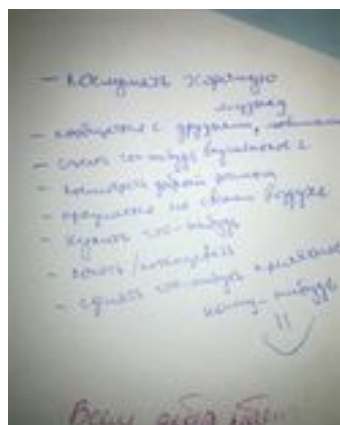 - послушать хорошую
музыку
- пообщаться с друзьями,
- съесть что-нибудь вкусненькое
- посмотреть добрый фильм
- прогулка на свежем воздухе
- купить что-нибудь
- попеть/потанцевать
- сделать что-нибудь приятное
кому-нибудь